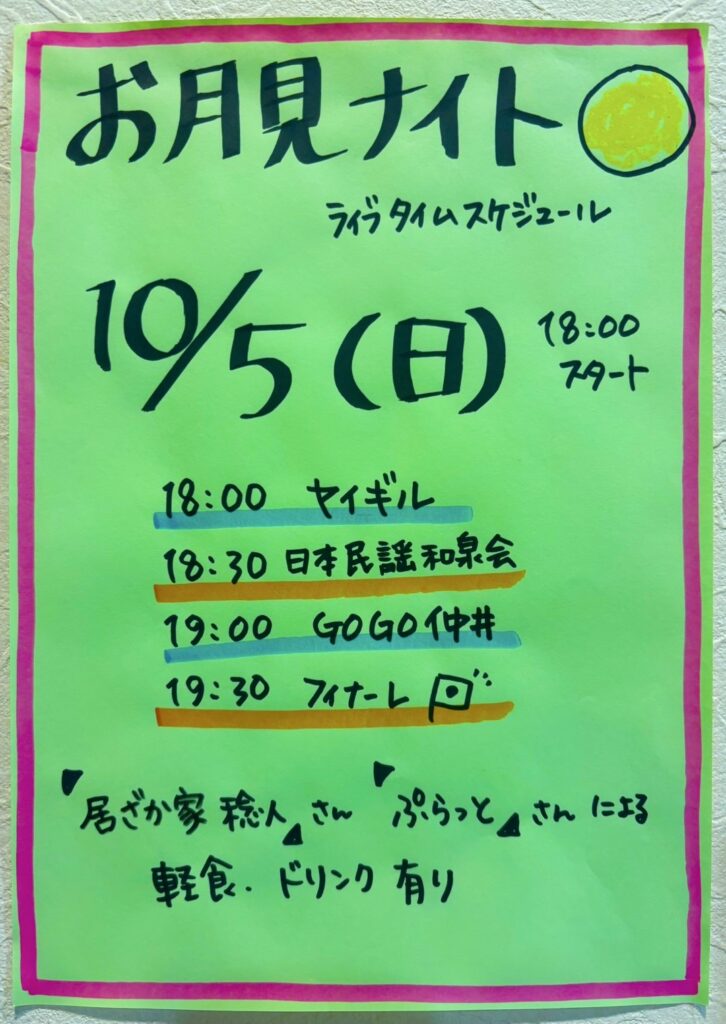 お月見ナイト
ライブタイムスケジュール
10/5(日)
18:00
スタート
18:00 ヤイギル
18:30 日本民謡和泉会
19:00 GOGO仲井
19:30 フィナーレ
居ざか家 稔人 さん ぷらっと さん による
軽食・ドリンク 有り